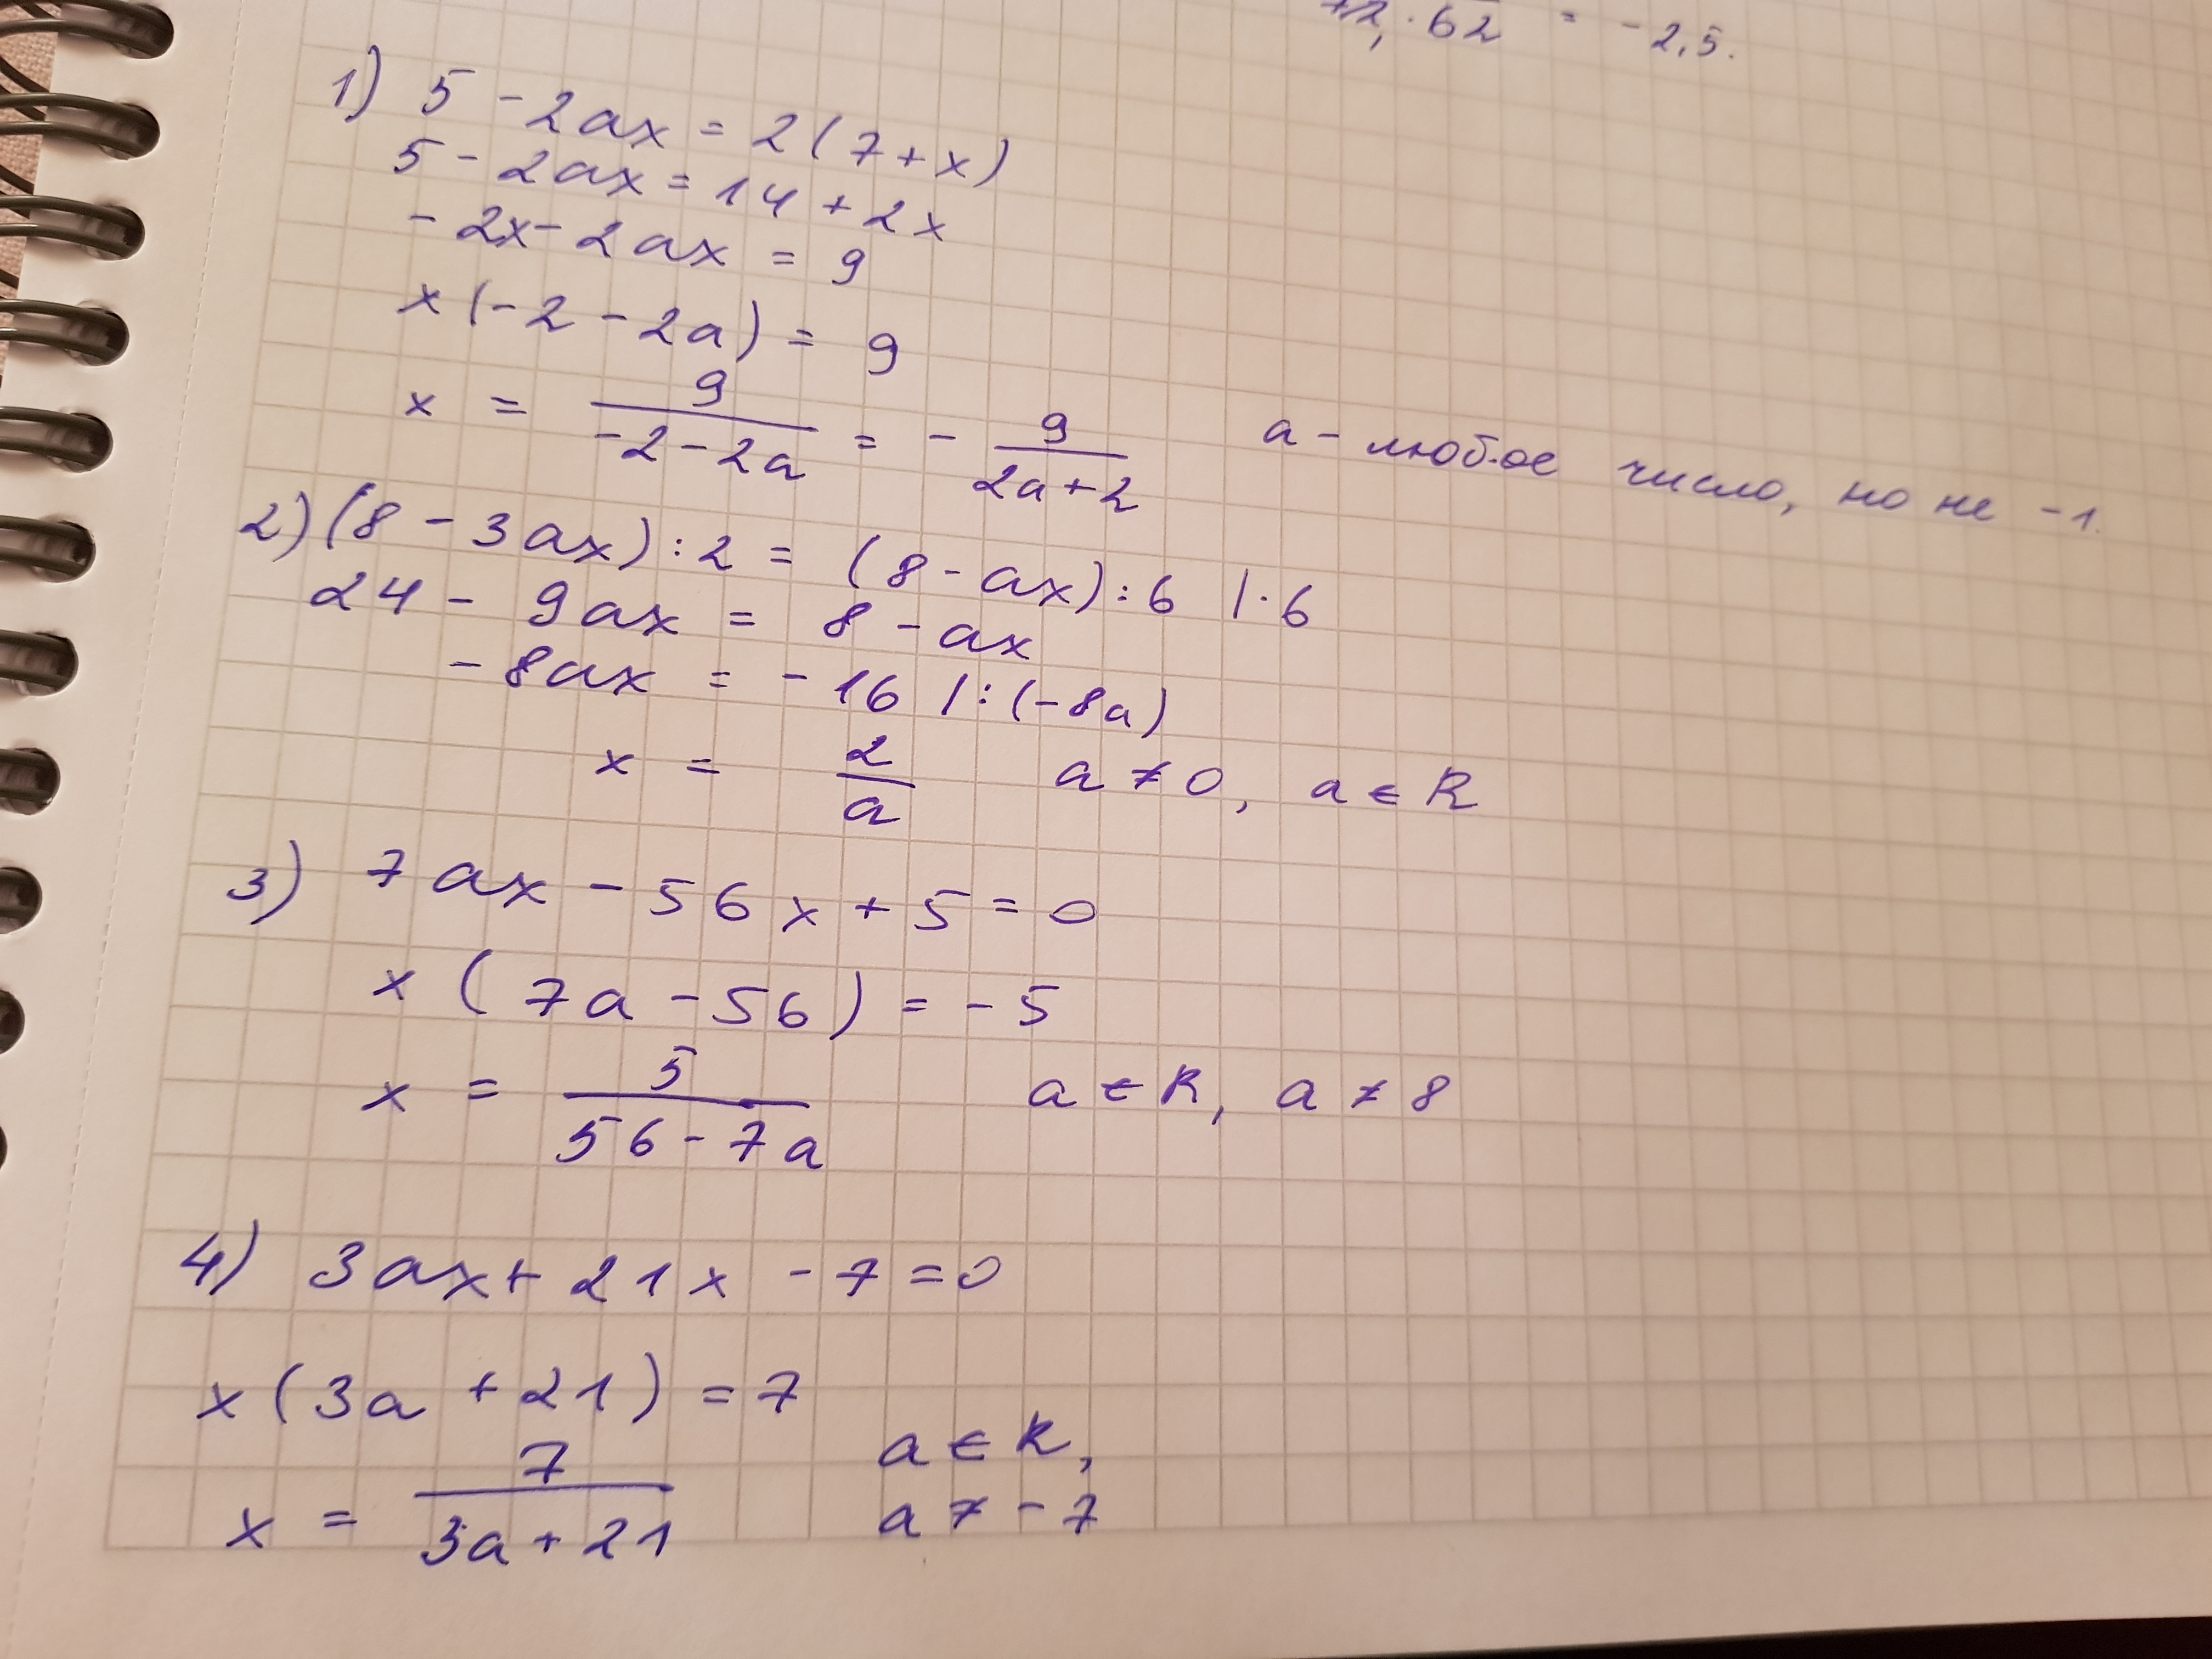 · 62 = -2,5.
1) 5 - 2ax = 2(7+x)
5 - 2ax = 14 + 2x
- 2x - 2ax = 9
x(-2 - 2a) = 9
x = 9/(-2-2a) = - 9/(2a+2) a - любое число, но не -1.
2) (8 - 3ax):2 = (8 - ax):6 |·6
24 - 9ax = 8 - ax
- 8ax = - 16 |:(-8a)
x = 2/a a ≠ 0, a ∈ R
3) 7ax - 56x + 5 = 0
x (7a - 56) = - 5
x = 5/(56-7a) a ∈ R, a ≠ 8
4) 3ax + 21x - 7 = 0
x(3a + 21) = 7
x = 7/(3a+21) a ∈ R,
a ≠ - 7